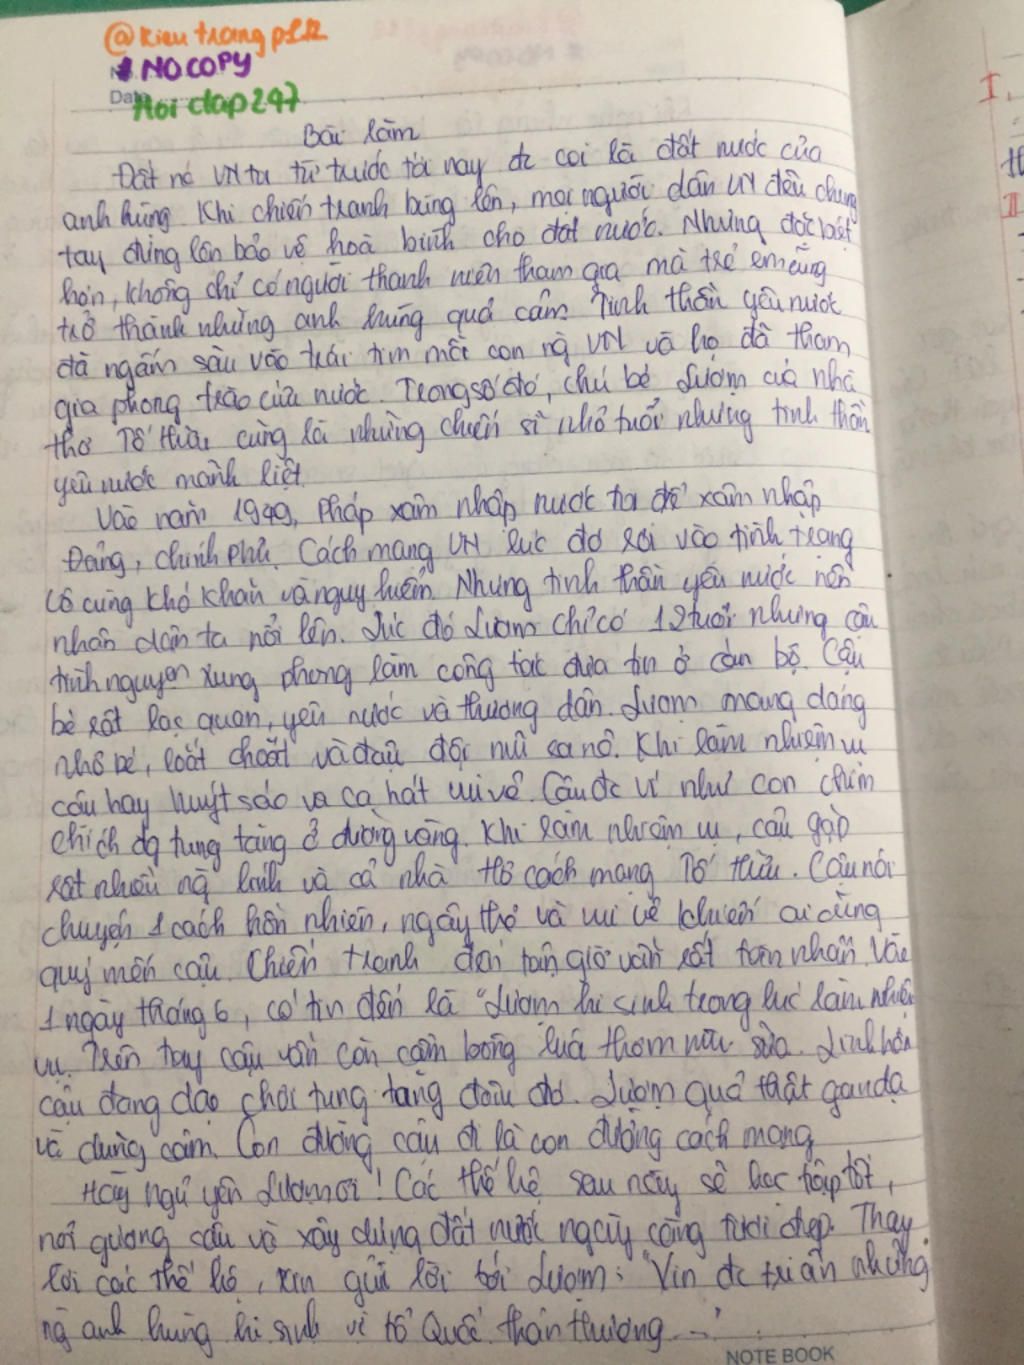 @kieu trang p1R
# NO COPY
Date
Hoi dap 247
Bài làm
Đất nc VN ta từ trước tới nay đc coi là đất nước của
anh hùng. Khi chiến tranh bùng lên, mọi người dân VN đều chung
tay đứng lên bảo vệ hoà bình cho đất nước. Nhưng đặc biệt
hơn, không chỉ có người thanh niên tham gia mà trẻ em cũng
trở thành những anh hùng quả cảm. Tinh thần yêu nước
đã ngấm sâu vào trái tim mỗi con ng VN và họ đã tham
gia phong trào cứu nước. Trong số đó, chú bé Lượm của nhà
thơ Tố Hữu cũng là những chiến sĩ nhỏ tuổi nhưng tinh thần
yêu nước mãnh liệt.
Vào năm 1949, Pháp xâm nhập nước ta để xâm nhập
Đảng, chính phủ. Cách mạng VN lúc đó rơi vào tình trạng
vô cùng khó khăn và nguy hiểm. Nhưng tinh thần yêu nước nên
nhân dân ta nổi lên. Lúc đó Lượm chỉ có 12 tuổi nhưng cậu
tình nguyện xung phong làm công tác đưa tin ở cán bộ. Cậu
bé rất lạc quan, yêu nước và thương dân. Lượm mang dáng
nhỏ bé, loắt choắt và đầu đội mũ ca nô. Khi làm nhiệm vụ
cậu hay huýt sáo và ca hát vui vẻ. Cậu đc ví như con chim
chích đg tung tăng ở đường vàng. Khi làm nhiệm vụ, cậu gặp
rất nhiều ng lính và cả nhà thơ cách mạng Tố Hữu. Cậu nói
chuyện 1 cách hồn nhiên, ngây thơ và vui vẻ khiến ai cũng
quý mến cậu. Chiến tranh đến tận giờ vẫn rất tàn nhẫn. Vào
1 ngày tháng 6, có tin đến là "Lượm hi sinh trong lúc làm nhiệm
vụ. Trên tay cậu vẫn còn cầm bông lúa thơm mùi sữa. Linh hồn
cậu đang dạo chơi tung tăng đâu đó. Lượm quả thật gan dạ
và dũng cảm. Con đường cậu đi là con đường cách mạng
Hãy ngủ yên Lượm ơi! Các thế hệ sau này sẽ học tập tốt,
noi gương cậu và xây dựng đất nước ngày càng tươi đẹp. Thay
lời các thế hệ, xin gửi lời tới Lượm: "Xin đc tri ân những
ng anh hùng hi sinh vì tổ Quốc thân thương..."
NOTE BOOK
I.
II